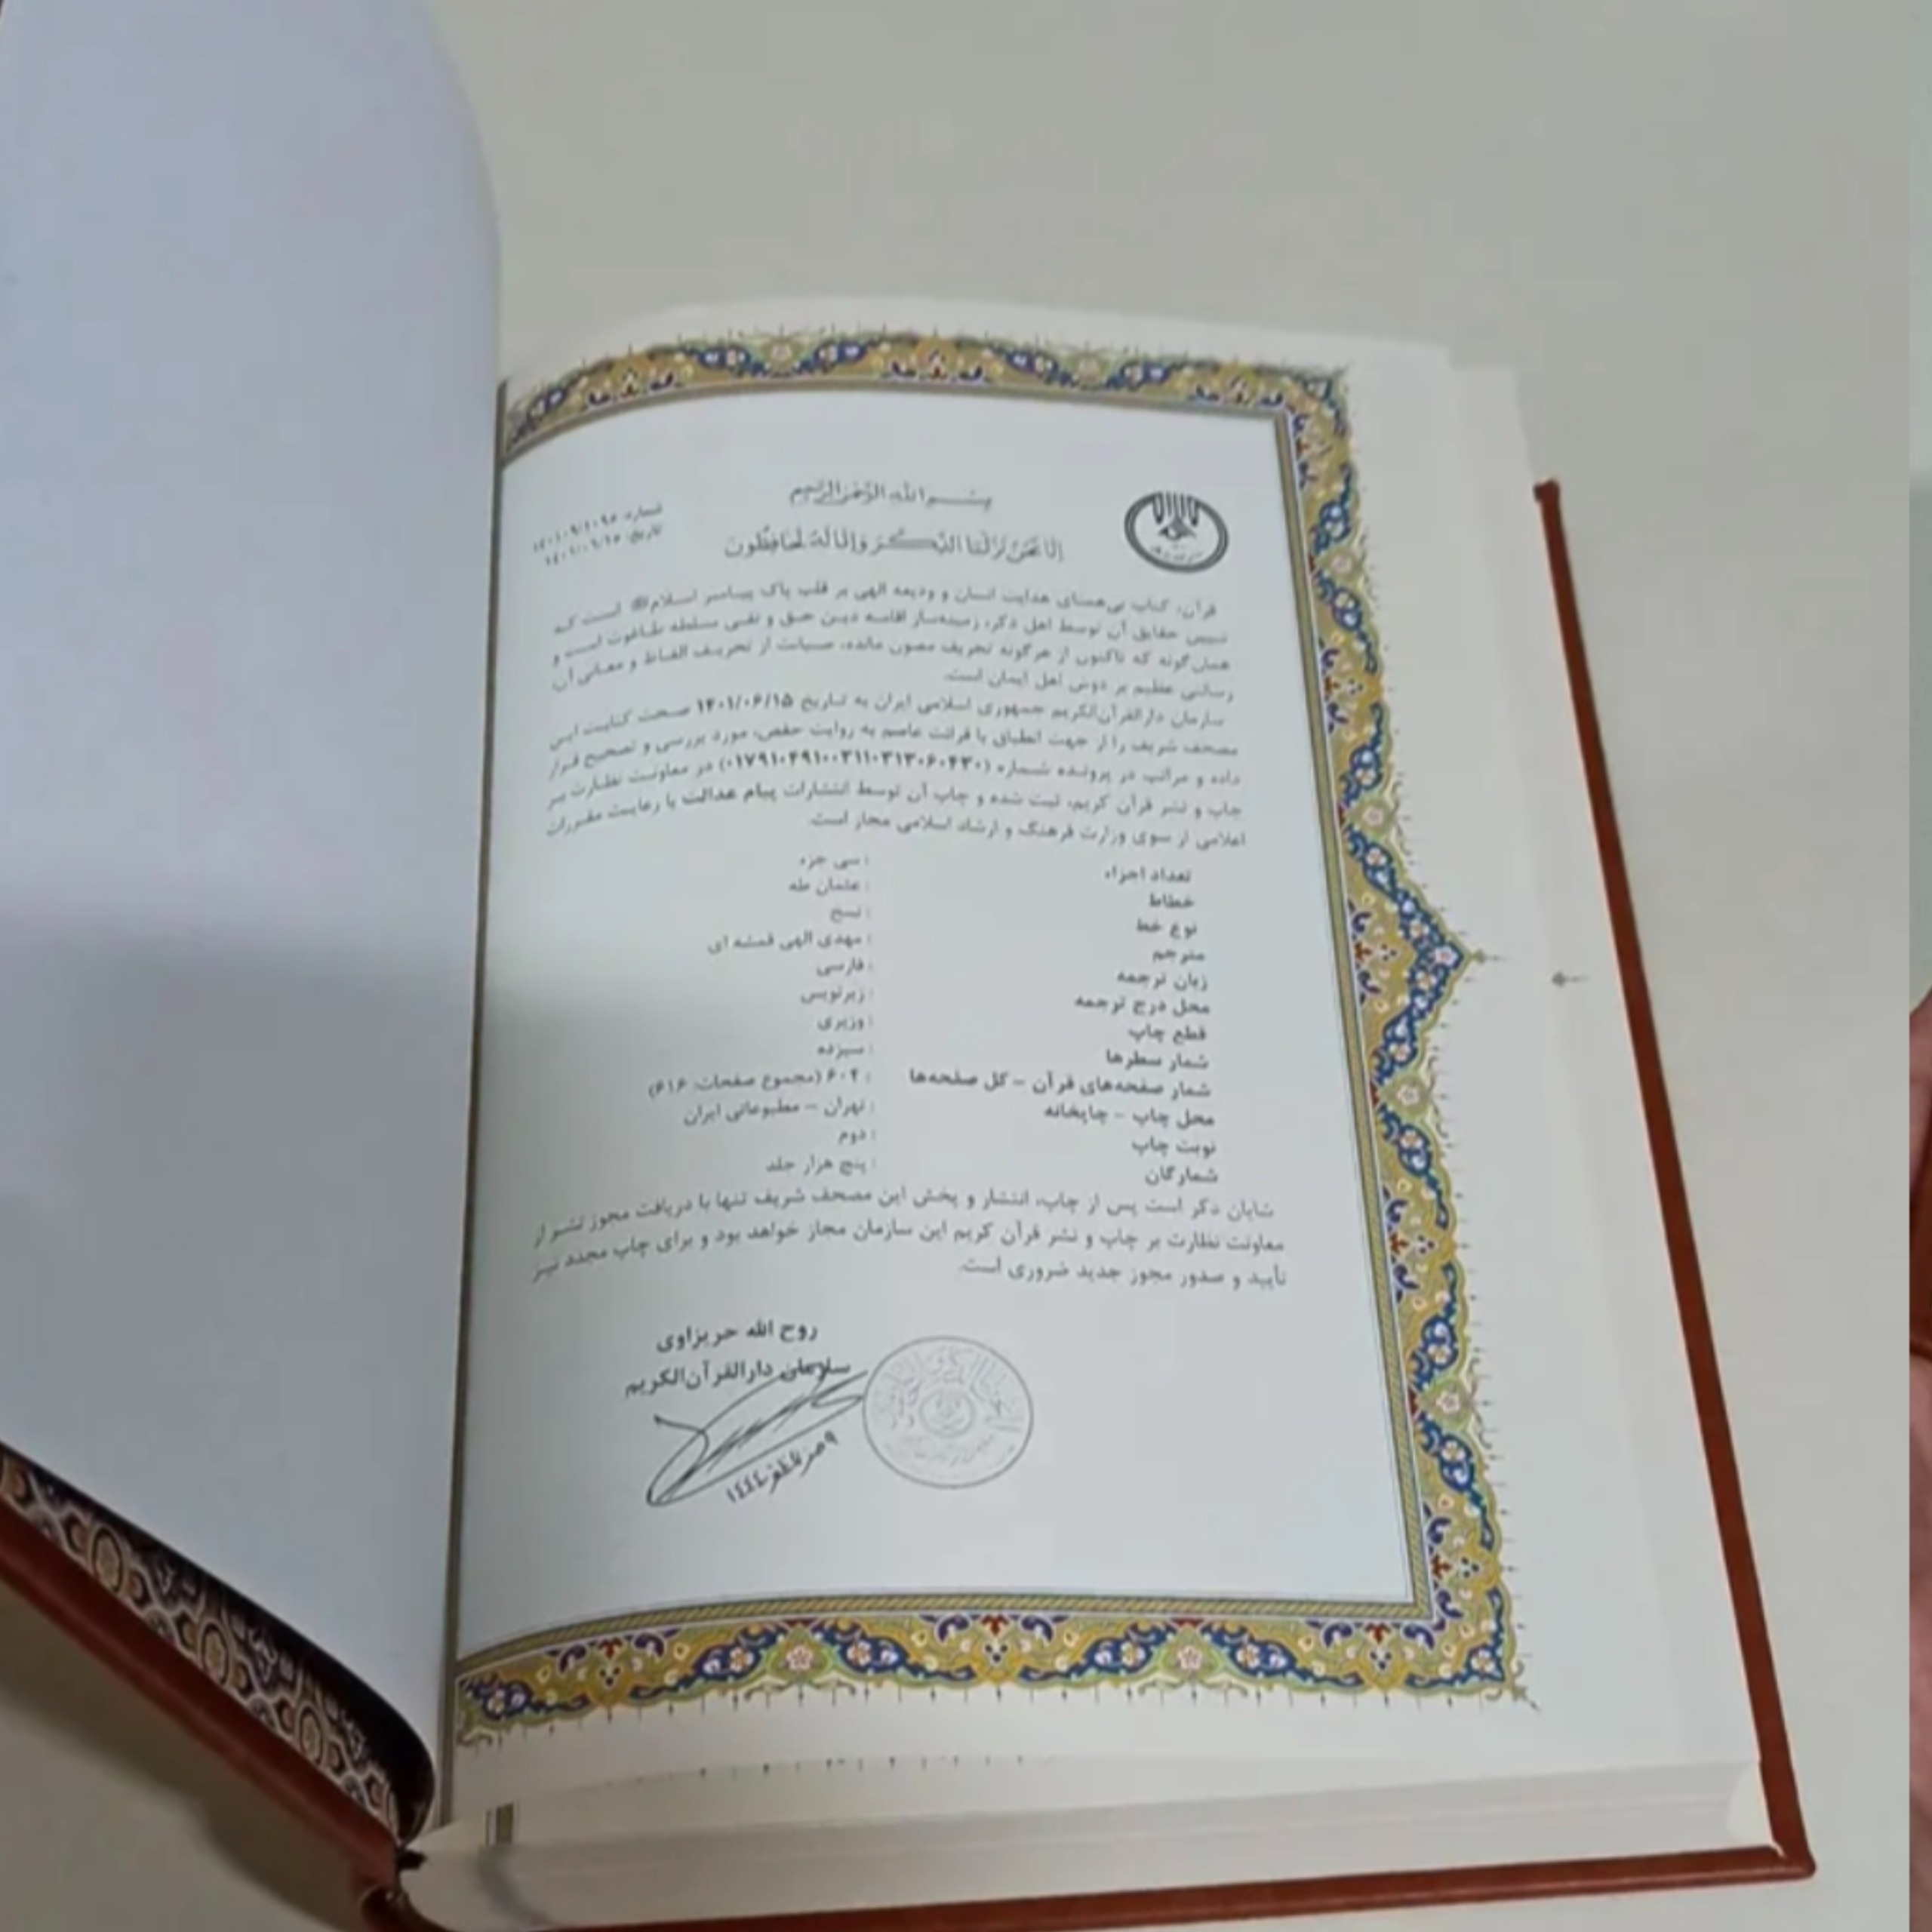 بسم الله الرحمن الرحیم
إنا نحن نزلنا الذکر وإنا له لحافظون
شماره:
تاریخ: ۱۴۰۱/۰۶/۱۵
قرآن، کتاب بی‌همتای هدایت انسان و ودیعه الهی بر قلب پاک پیامبر اسلامﷺ است که
تبیین حقایق آن توسط اهل ذکر، زمینه‌ساز اقامه دین حق و نفی سلطه طاغوت است و
همان‌گونه که تاکنون از هرگونه تحریف مصون مانده، صیانت از تحریف الفاظ و معانی آن،
رسالتی عظیم بر دوش اهل ایمان است.
سازمان دارالقرآن‌الکریم جمهوری اسلامی ایران به تاریخ ۱۴۰۱/۰۶/۱۵ صحت کتابت این
مصحف شریف را از جهت انطباق با قرائت عاصم به روایت حفص، مورد بررسی و تصحیح قرار
داده و مراتب در پرونده شماره (۰۱۷۹۱۰۴۹۱۰۰۳۱۱۰۳۱۳۰۶۰۴۳۰) در معاونت نظارت بر
چاپ و نشر قرآن کریم، ثبت شده و چاپ آن توسط انتشارات پیام عدالت با رعایت مقررات
اعلامی از سوی وزارت فرهنگ و ارشاد اسلامی مجاز است.
تعداد اجزاء : سی جزء
خطاط : عثمان طه
نوع خط : نسخ
مترجم : مهدی الهی قمشه ای
زبان ترجمه : فارسی
محل درج ترجمه : زیرنویس
قطع چاپ : وزیری
شمار سطرها : سیزده
شمار صفحه‌های قرآن – کل صفحه‌ها : ۶۰۴ (مجموع صفحات: ۶۱۶)
محل چاپ – چاپخانه : تهران – مطبوعاتی ایران
نوبت چاپ : دوم
شمارگان : پنج هزار جلد
شایان ذکر است پس از چاپ، انتشار و پخش این مصحف شریف تنها با دریافت مجوز نشر از
معاونت نظارت بر چاپ و نشر قرآن کریم این سازمان مجاز خواهد بود و برای چاپ مجدد نیز
تأیید و صدور مجوز جدید ضروری است.
روح الله حریزاوی
سازمان دارالقرآن‌الکریم
۹ صفرالمظفر ۱۴۴۴